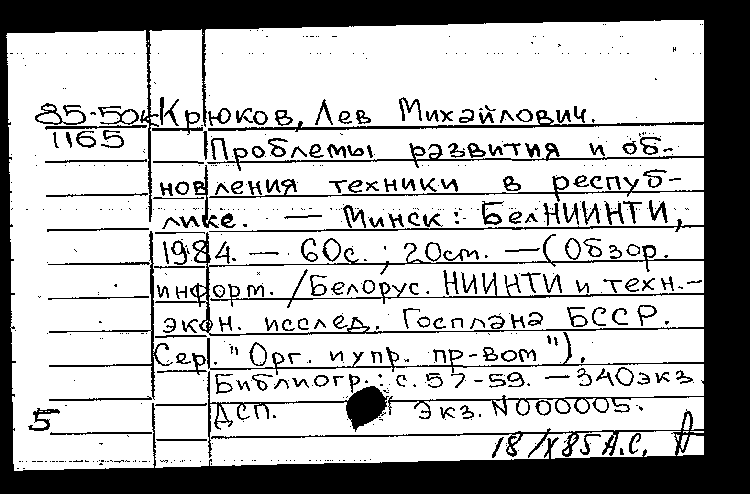 85-50к Крюков, Лев Михайлович.
1165
Проблемы развития и об-
новления техники в респуб-
лике. — Минск: БелНИИНТИ,
1984. — 60с.; 20см. — (Обзор.
информ. /Белорус. НИИНТИ и техн.-
экон. исслед. Госплана БССР.
Сер. "Орг. и упр. пр-вом").
Библиогр.: с. 57-59. — 340экз.
ДСП. Экз. N000005.
5
18/X85 А.С.